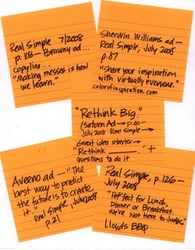 Real Simple 7/2008
p. 186 – Brawny ad...
copyline...
"Making messes is how
we learn."
Sherwin Williams ad –
Real Simple, July 2008
p. 87
"Share your inspiration
with virtually everyone."
colorofinspiration.com
"Rethink Big."
(Saturn Ad –
July 2008 Real Simple
Great idea starters –
"Rethink +
questions to do it
Aveeno ad – "The
easiest way to predict
the future is to create
it."
Real Simple, July 2008
p. 21
Real Simple, p. 126 –
July 2008
"If not for Lunch,
Dinner or Breakfast,
We're Not Here to
Lloyds BBQ